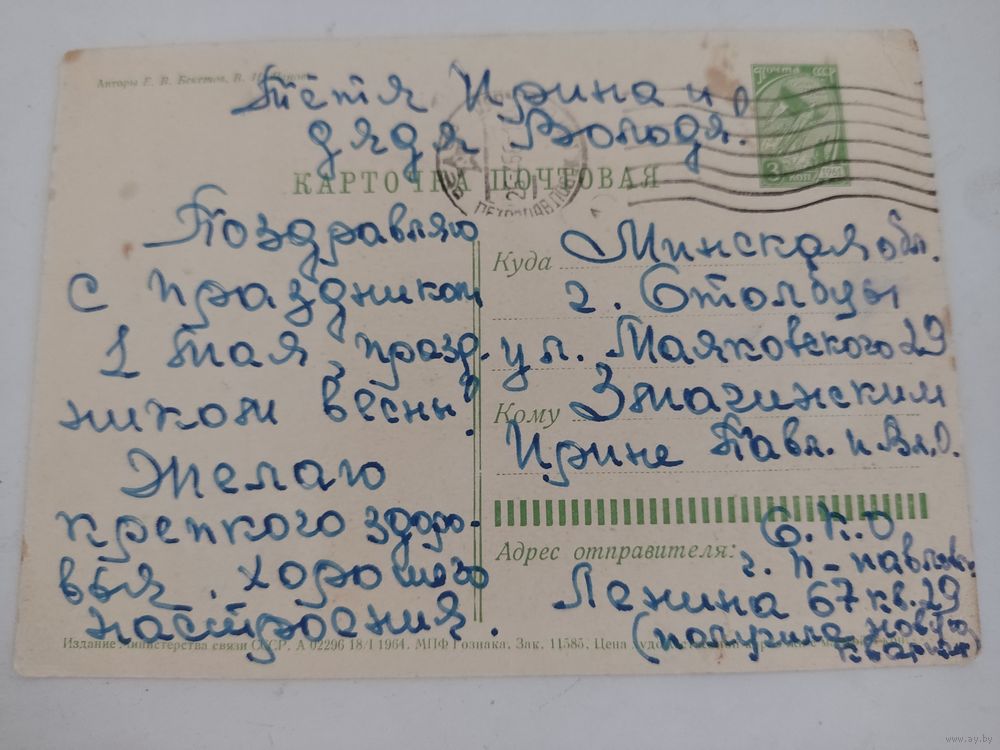 Авторы Е. В. Бекетов, В.
Тётя Ирина и
дядя Володя.
ПОЧТА СССР
3 КОП 1961
КАРТОЧКА ПОЧТОВАЯ
Поздравляю
с праздником
1 Мая, празд-
ником весны.
Желаю
крепкого здоро-
вья, хорошего
настроения.
Куда Минская обл.
г. Столбцы
ул. Маяковского 29
Кому Змачинским
Ирине Павл. и Вл.О.
С.К.О
Адрес отправителя: г. П-павловск
Ленина 67 кв. 29
(получила новую
квартиру)
Издание Министерства связи СССР. А 02296 18/I 1964. МПФ Гознака. Зак. 11585. Цена
www.ay.by